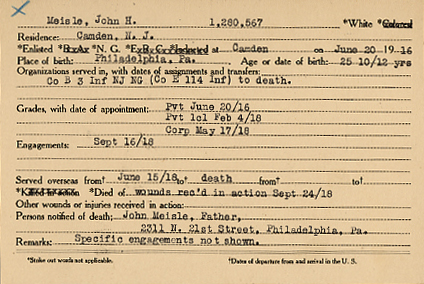 Meisle, John H. 1,280,567 *White *Colored
Residence: Camden, N. J.
*Enlisted *R.A. *N. G. *E.R.C. *Inducted at Camden on June 20 1916
Place of birth: Philadelphia, Pa. Age or date of birth: 25 10/12 yrs
Organizations served in, with dates of assignments and transfers:
Co B 3 Inf NJ NG (Co E 114 Inf) to death.
Grades, with date of appointment: Pvt June 20/16
Pvt 1cl Feb 4/18
Corp May 17/18
Engagements: Sept 16/18
Served overseas from† June 15/18 to† death from† to†
*Killed in action *Died of wounds rec'd in action Sept 24/18
Other wounds or injuries received in action:
Persons notified of death: John Meisle, Father,
2311 N. 21st Street, Philadelphia, Pa.
Remarks: Specific engagements not shown.
*Stroke out words not applicable. †Dates of departure from and arrival in the U. S.